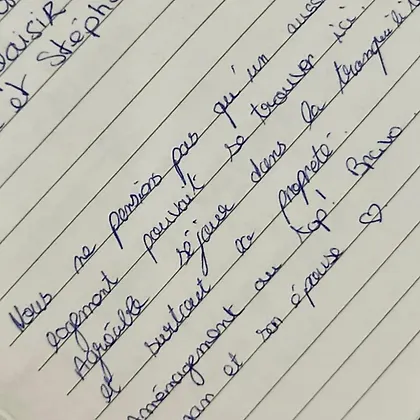 aisir
et Stéph
Nous ne pensions pas qu'un auss
logement pouvait se trouver ici.
Agréable séjour dans la tranquilli
et surtout la propreté.
Aménagement au top! Bravo
et son épouse ♡